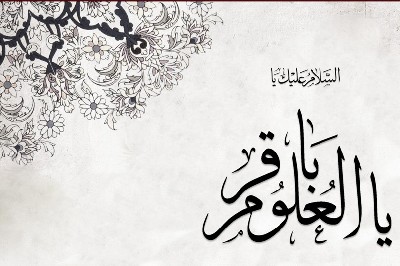 السَّلامُ عَلَیْكَ یَا
یا باقِرُ العُلُومِ